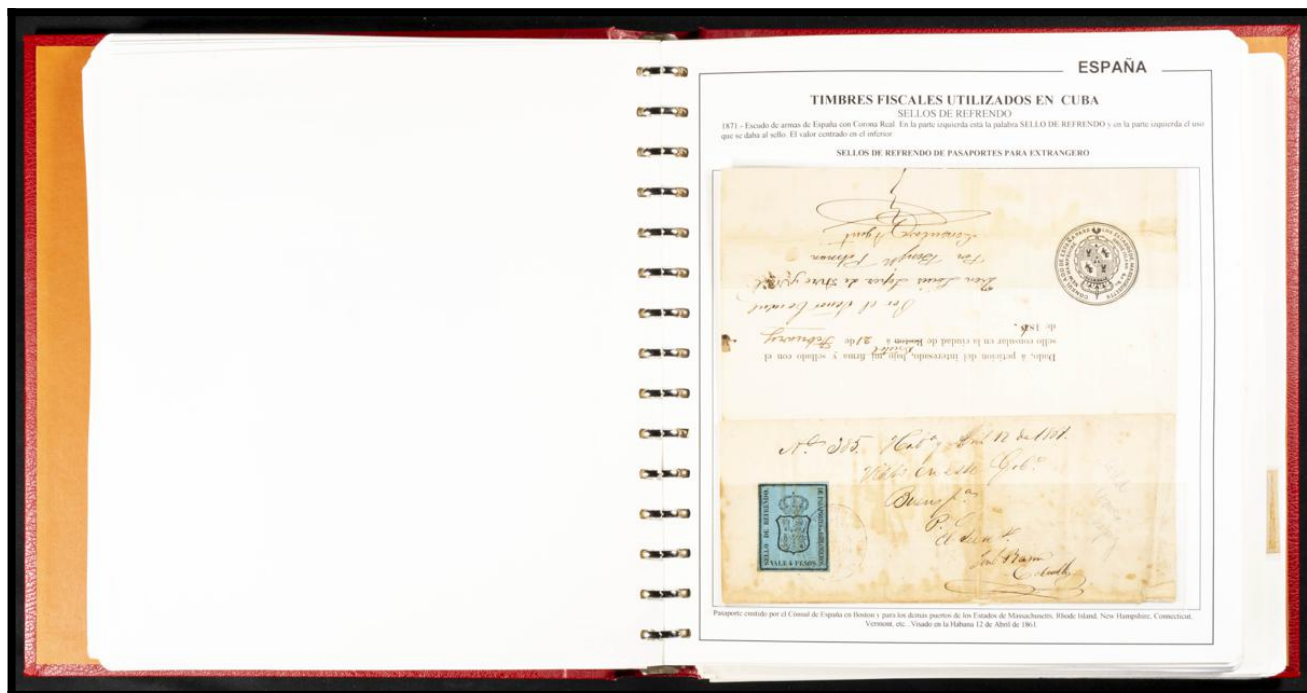 ESPAÑA
TIMBRES FISCALES UTILIZADOS EN CUBA
SELLOS DE REFRENDO
1871.- Escudo de armas de España con Corona Real. En la parte izquierda está la palabra SELLO DE REFRENDO y en la parte izquierda el uso
que se daba al sello. El valor centrado en el inferior.
SELLOS DE REFRENDO DE PASAPORTES PARA EXTRANGERO
Dado, á peticion del interesado, bajo mi firma y sellado con el
sello consular en la ciudad de Boston á 21 de February
de 186
Por el Senor Consul
Don Louis Lopez de
Por
Consular Agent
No. 385.
Visto en este Gob.o
SELLO DE REFRENDO.
VALE 4 PESOS.
Pasaporte emitido por el Cónsul de España en Boston y para los demás puertos de los Estados de Massachusetts, Rhode Island, New Hampshire, Connecticut,
Vermont, etc.. Visado en la Habana 12 de Abril de 1861.